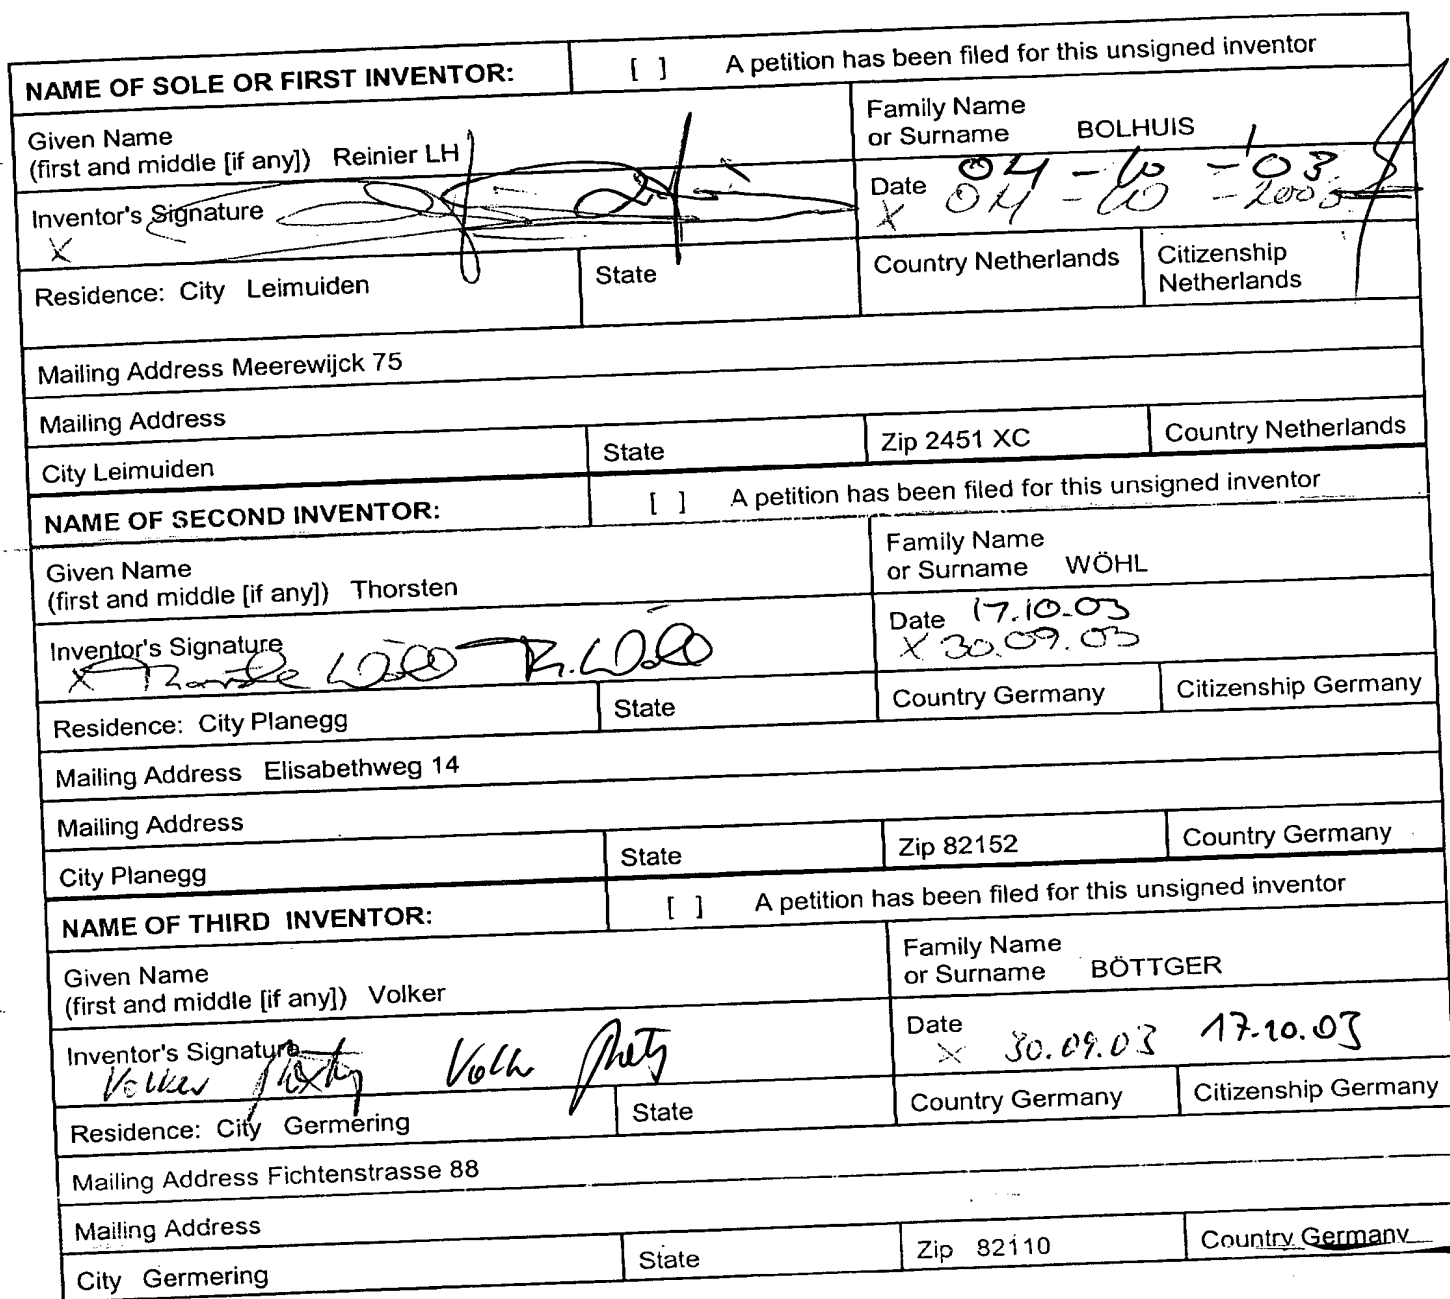 NAME OF SOLE OR FIRST INVENTOR: [ ] A petition has been filed for this unsigned inventor
Given Name
(first and middle [if any]) Reinier LH
Family Name
or Surname BOLHUIS
Inventor's Signature
X
Date 04 - 10 - '03
X 04 - 10 - 2003
Residence: City Leimuiden State Country Netherlands Citizenship
Netherlands
Mailing Address Meerewijck 75
Mailing Address
City Leimuiden State Zip 2451 XC Country Netherlands
NAME OF SECOND INVENTOR: [ ] A petition has been filed for this unsigned inventor
Given Name
(first and middle [if any]) Thorsten
Family Name
or Surname WÖHL
Inventor's Signature
X
Date 17.10.03
X 30.09.03
Residence: City Planegg State Country Germany Citizenship Germany
Mailing Address Elisabethweg 14
Mailing Address
City Planegg State Zip 82152 Country Germany
NAME OF THIRD INVENTOR: [ ] A petition has been filed for this unsigned inventor
Given Name
(first and middle [if any]) Volker
Family Name
or Surname BÖTTGER
Inventor's Signature
Volker
Date
X 30.09.03 17.10.03
Residence: City Germering State Country Germany Citizenship Germany
Mailing Address Fichtenstrasse 88
Mailing Address
City Germering State Zip 82110 Country Germany